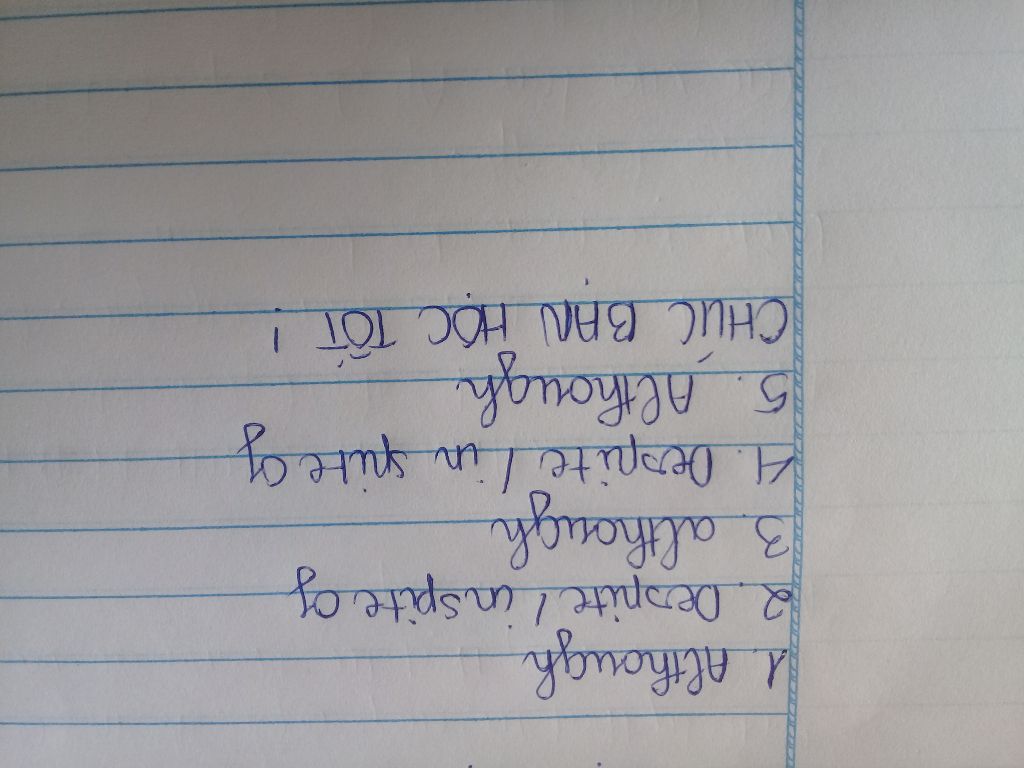 1. Although
2. Despite / in spite of
3. although
4. Despite / in spite of
5. Although
CHÚC BẠN HỌC TỐT !